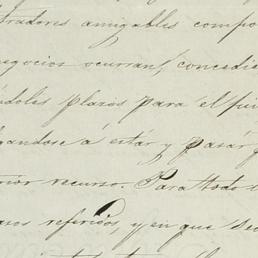 tradores amigables compo
negocios ocurran, concedie
éndoles plazos para el
gandose á estár y pasár p
rior recurso. Para todo
asos referidos, y en que sea